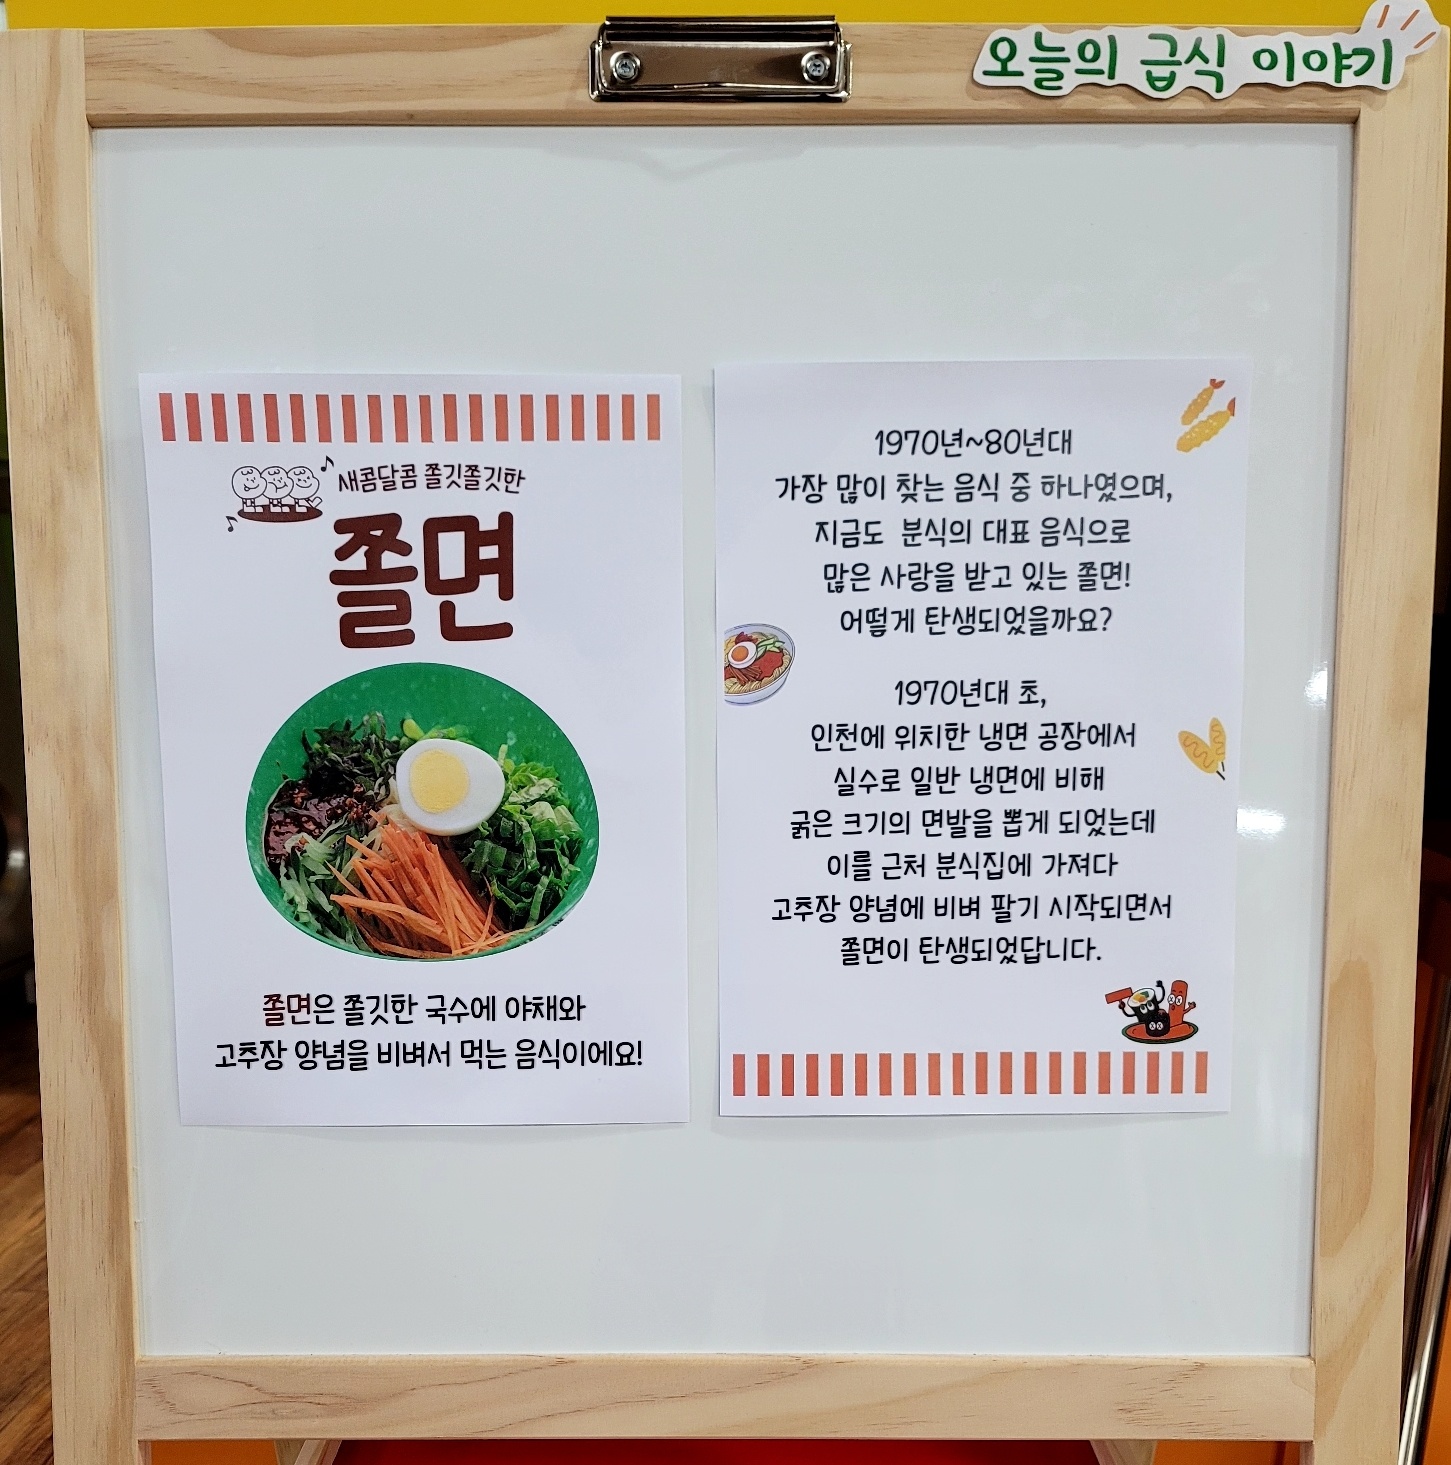 오늘의 급식 이야기
새콤달콤 쫄깃쫄깃한
쫄면
쫄면은 쫄깃한 국수에 야채와
고추장 양념을 비벼서 먹는 음식이에요!
1970년~80년대
가장 많이 찾는 음식 중 하나였으며,
지금도 분식의 대표 음식으로
많은 사랑을 받고 있는 쫄면!
어떻게 탄생되었을까요?
1970년대 초,
인천에 위치한 냉면 공장에서
실수로 일반 냉면에 비해
굵은 크기의 면발을 뽑게 되었는데
이를 근처 분식집에 가져다
고추장 양념에 비벼 팔기 시작되면서
쫄면이 탄생되었답니다.